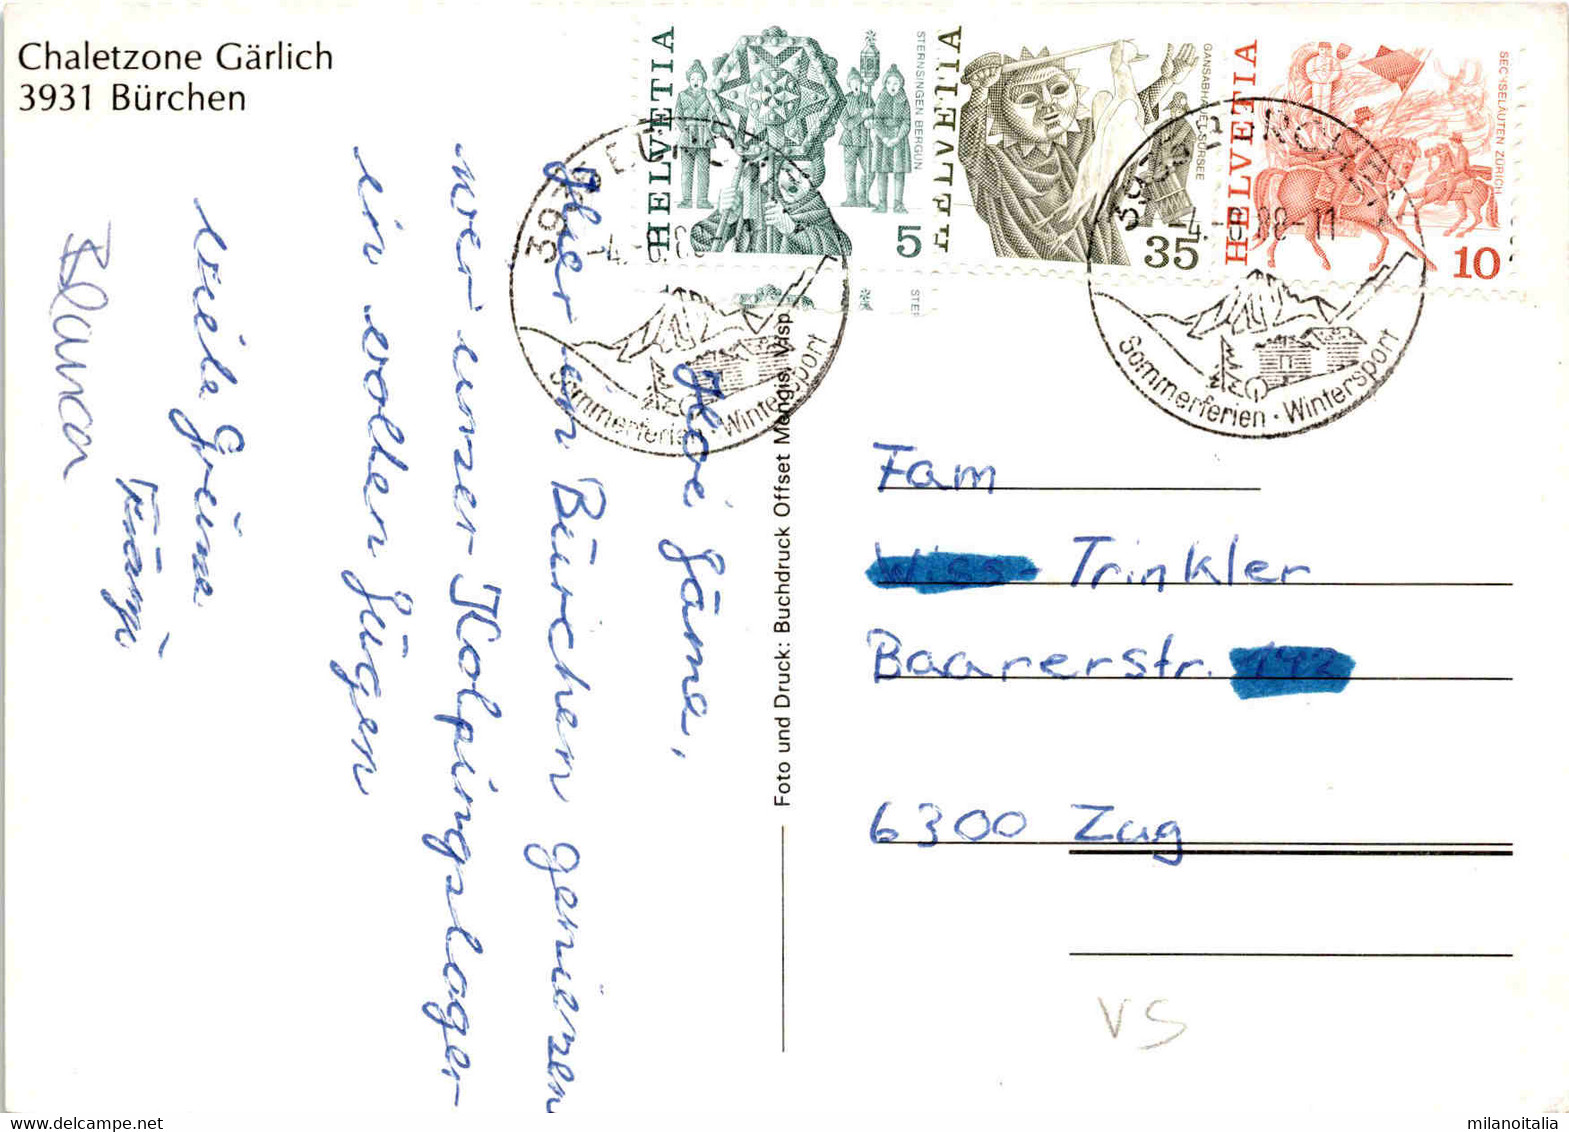 Chaletzone Gärlich
3931 Bürchen
HELVETIA
STERNSINGEN BERGÜN
5
HELVETIA
GANSABHAUET SURSEE
35
HELVETIA
SECHSELÄUTEN ZÜRICH
10
STER
Sommerferien · Wintersport
3931 BÜRCHEN
-4.-8.88-11
Sommerferien · Wintersport
Hoi Gäme,
Hier in Bürchen geniesen
wer unser Kolpingslager
in vollen Zügen
Viele Grüsse
Fränzi
Bianca
Foto und Druck: Buchdruck Offset Mengis, Visp
Fam
Wiss- Trinkler
Baarerstr.
6300 Zug
VS
milanoitalia